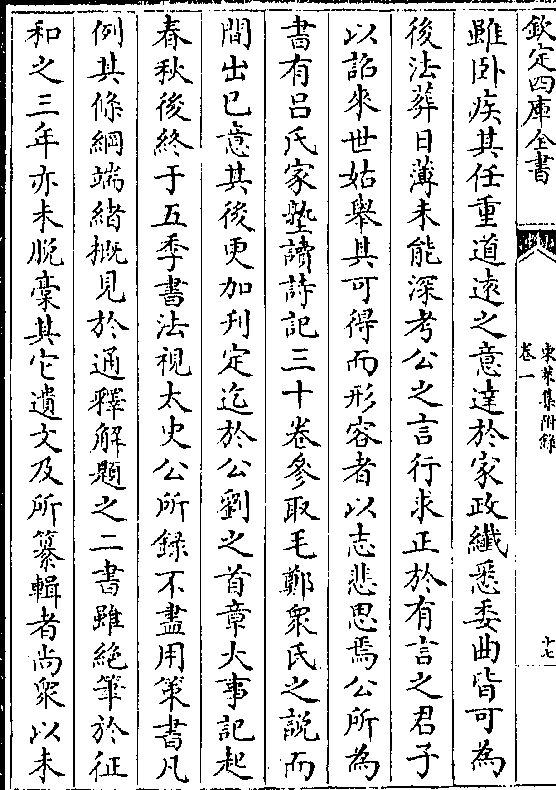 欽定四庫全書
東萊集附錄
卷一
十七
雖卧疾其任重道遠之意達於家政纎悉委曲皆可為
後法葬日薄未能深考公之言行求正於有言之君子
以詔來世姑舉其可得而形容者以志悲思焉公所為
書有吕氏家塾讀詩記三十卷參取毛鄭衆氏之說而
間出已意其後更加刋定迄於公劉之首章大事記起
春秋後終于五季書法視太史公所録不盡用策書凡
例其條綱端緒概見於通釋解題之二書雖絶筆於征
和之三年亦未脫藁其它遺文及所纂輯者尚衆以未